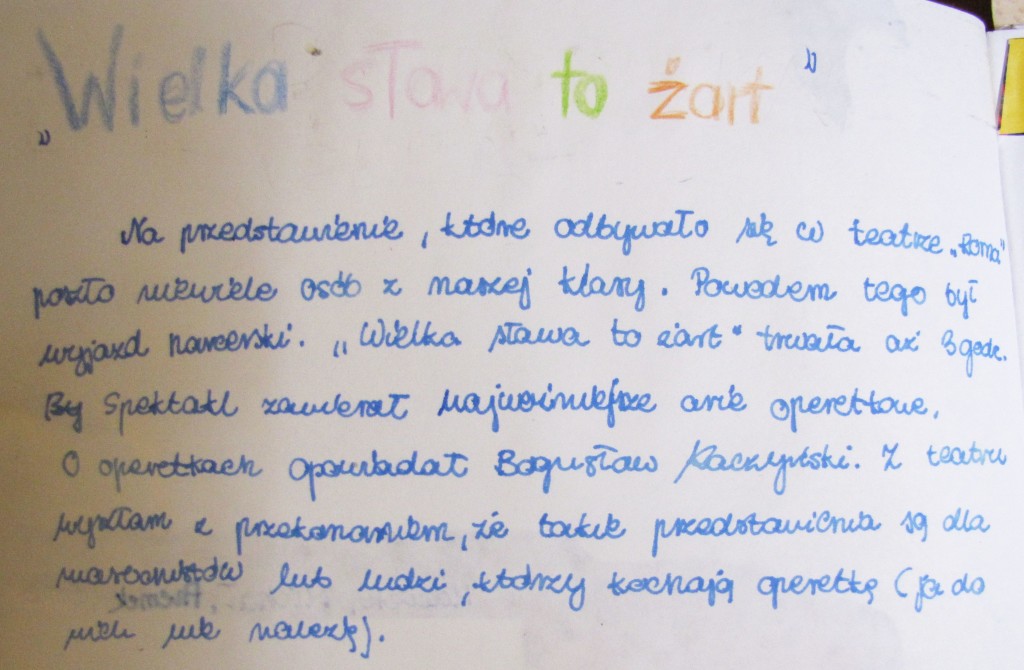 „Wielka sława to żart”
Na przedstawienie, które odbywało się w teatrze „Roma”
poszło niewiele osób z naszej klasy. Powodem tego był
wyjazd narcerski. „Wielka sława to żart" trwała aż 3 godz.
By Spektakl zawierał najważniejsze arie operetkowe.
O operetkach opowiadał Bogusław Kaczyński. Z teatru
wyszłam z przekonaniem, że takie przedstawienia są dla
masochistów lub ludzi, którzy kochają operetkę (ja do
nich nie należę).